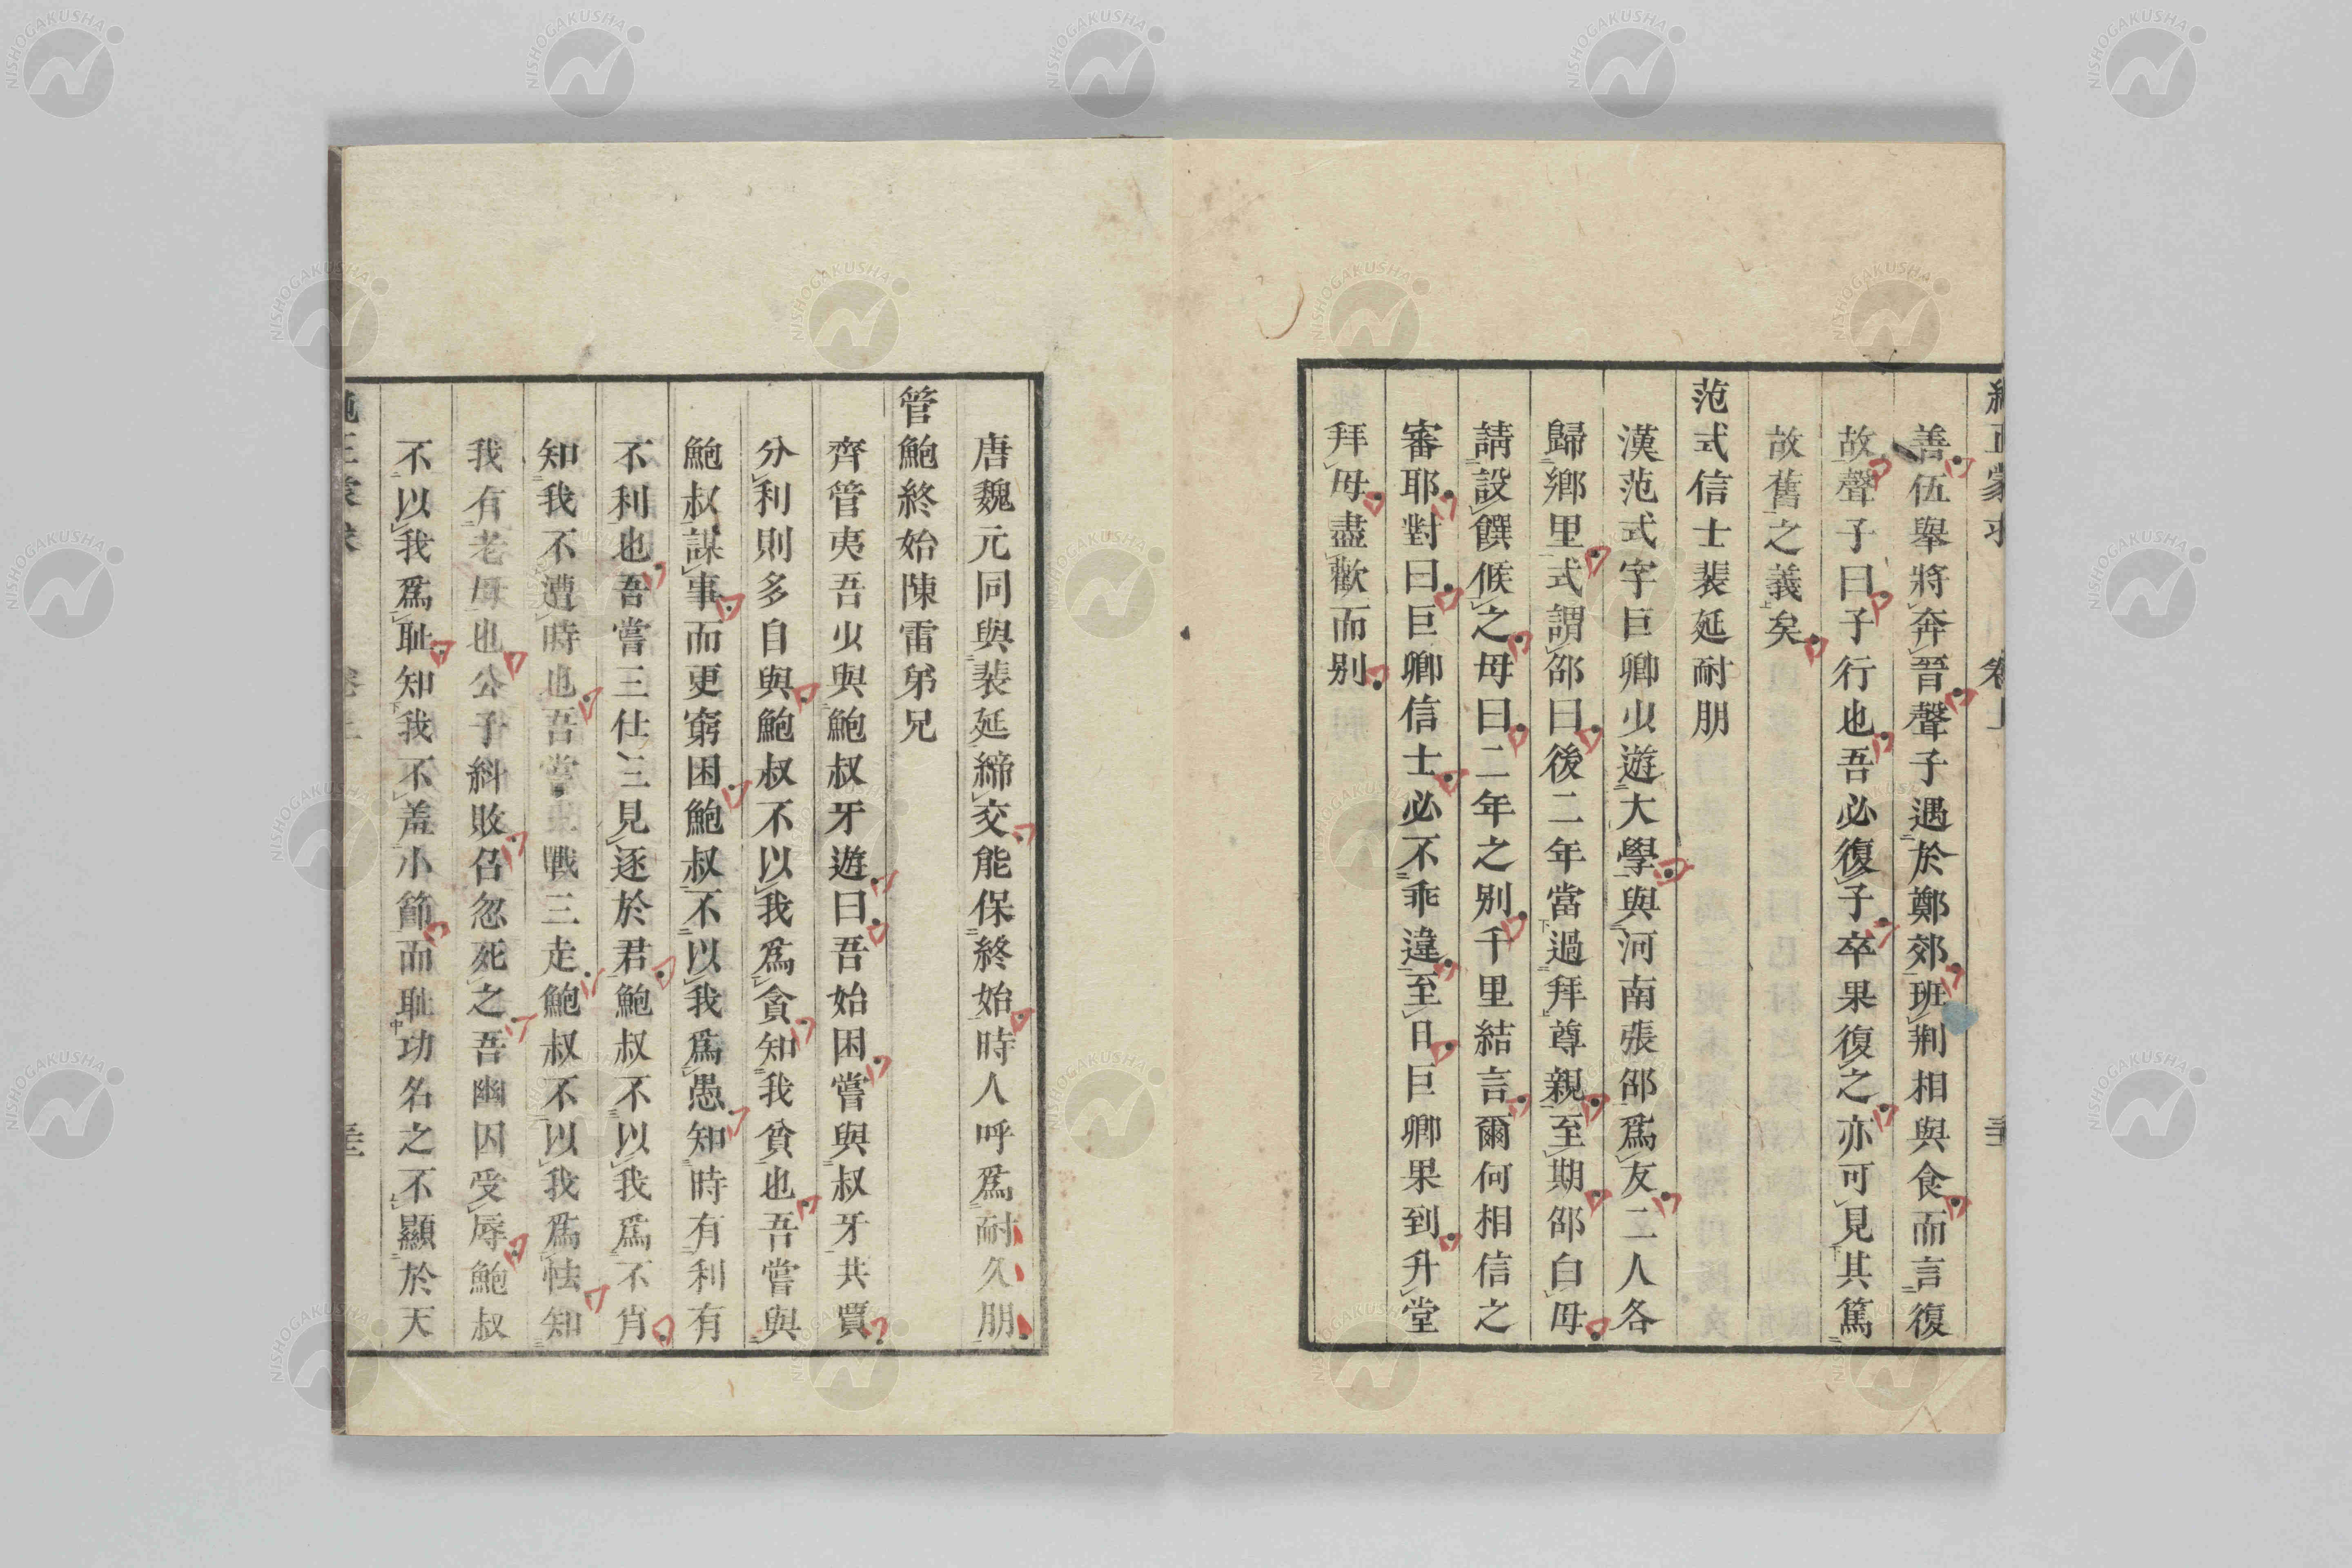 善伍舉將奔晉聲子遇於鄭郊班荆相與食而言復
故聲子曰子行也吾必復子卒果復之亦可見其篤
故舊之義矣
范式信士裴延耐朋
漢范式字巨卿少遊大學與河南張邵爲友二人各
歸鄉里式謂邵曰後二年當過拜尊親至期邵白母
請設饌候之母曰二年之别千里結言爾何相信之
審耶對曰巨卿信士必不乖違至日巨卿果到升堂
拜母盡歡而别
唐魏元同與裴延締交能保終始時人呼爲耐久朋
管鮑終始陳雷弟兄
齊管夷吾少與鮑叔牙遊曰吾始困嘗與叔牙共賈
分利則多自與鮑叔不以我爲貪知我貧也吾嘗與
鮑叔謀事而更窮困鮑叔不以我爲愚知時有利有
不利也吾嘗三仕三見逐於君鮑叔不以我爲不肖
知我不遭時也吾嘗三戰三走鮑叔不以我爲怯知
我有老母也公子糾敗召忽死之吾幽囚受辱鮑叔
不以我爲耻知我不羞小節而耻功名之不顯於天
NISHOGAKUSHA